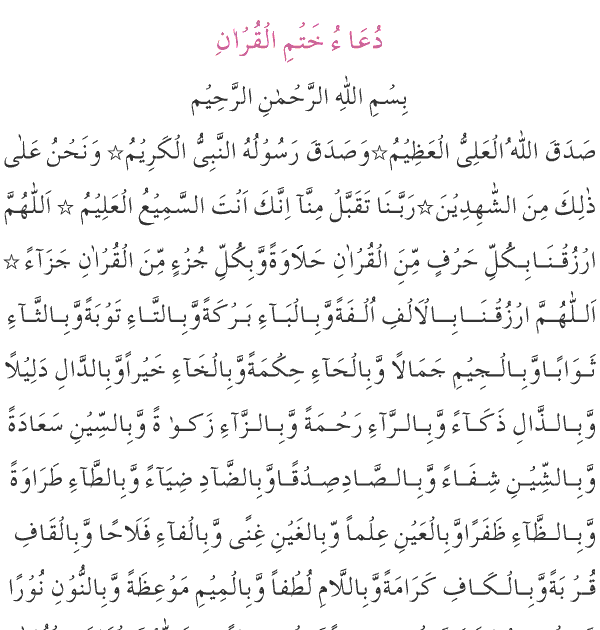 دُعَاءُ خَتْمِ الْقُرْاٰنِ
بِسْمِ اللّٰهِ الرَّحْمٰنِ الرَّحِيْمِ
صَدَقَ اللّٰهُ الْعَلِىُّ الْعَظِيْمُ☆وَصَدَقَ رَسُوْلُهُ النَّبِىُّ الْكَرِيْمُ☆ وَنَحْنُ عَلٰى
ذٰلِكَ مِنَ الشّٰهِدِيْنَ☆رَبَّنَا تَقَبَّلْ مِنَّآ اِنَّكَ اَنْتَ السَّمِيْعُ الْعَلِيْمُ ☆ اَللّٰهُمَّ
ارْزُقْنَا بِكُلِّ حَرْفٍ مِّنَ الْقُرْاٰنِ حَلَاوَةً وَّبِكُلِّ جُزْءٍ مِّنَ الْقُرْاٰنِ جَزَآءً☆
اَللّٰهُمَّ ارْزُقْنَا بِالْاَلْفِ اُلْفَةً وَّبِالْبَآءِ بَرْكَةً وَّبِالتَّاءِ تَوْبَةً وَّبِالثَّآءِ
ثَوَابًا وَّبِالْجِيْمِ جَمَالًا وَّبِالْحَآءِ حِكْمَةً وَّبِالْخَآءِ خَيْراً وَّبِالدَّالِ دَلِيْلًا
وَّبِالذَّالِ ذَكَآءً وَّبِالرَّآءِ رَحْمَةً وَّبِالزَّآءِ زَكٰوةً وَّبِالسِّيْنِ سَعَادَةً
وَّبِالشِّيْنِ شِفَاءً وَّبِالصَّادِ صِدْقًا وَّبِالضَّآدِ ضِيَآءً وَّبِالطَّآءِ طَرَاوَةً
وَّبِالظَّآءِ ظَفَرًا وَّبِالْعَيْنِ عِلْماً وَّبِالْغَيْنِ غِنًى وَّبِالْفَآءِ فَلَاحًا وَّبِالْقَافِ
قُرْبَةً وَّبِالْكَافِ كَرَامَةً وَّبِاللَّامِ لُطْفاً وَّبِالْمِيْمِ مَوْعِظَةً وَّبِالنُّوْنِ نُوْرًا